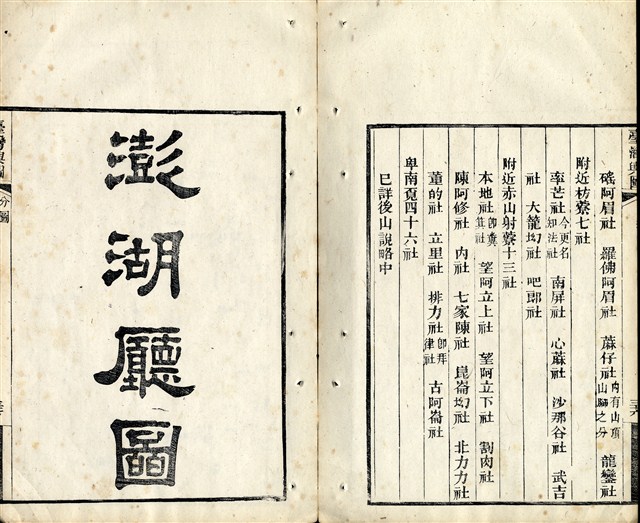 臺灣輿圖
猺阿眉社 羅佛阿眉社 蔴仔社內有山頂山腳之分 龍鑾社
附近枋藔七社
率芒社今更名知法社 南屏社 心蔴社 沙那谷社 武吉
社 大籠㘭社 吧郎社
附近赤山射藔十三社
本地社卽糞箕社 望阿立上社 望阿立下社 割肉社
陳阿修社 內社 七家陳社 崑崙㘭社 北力力社
董的社 立里社 排力社卽拜律社 古阿崙社
卑南覓四十六社
已詳後山說略中
澎湖廳圖
臺灣輿圖
分圖